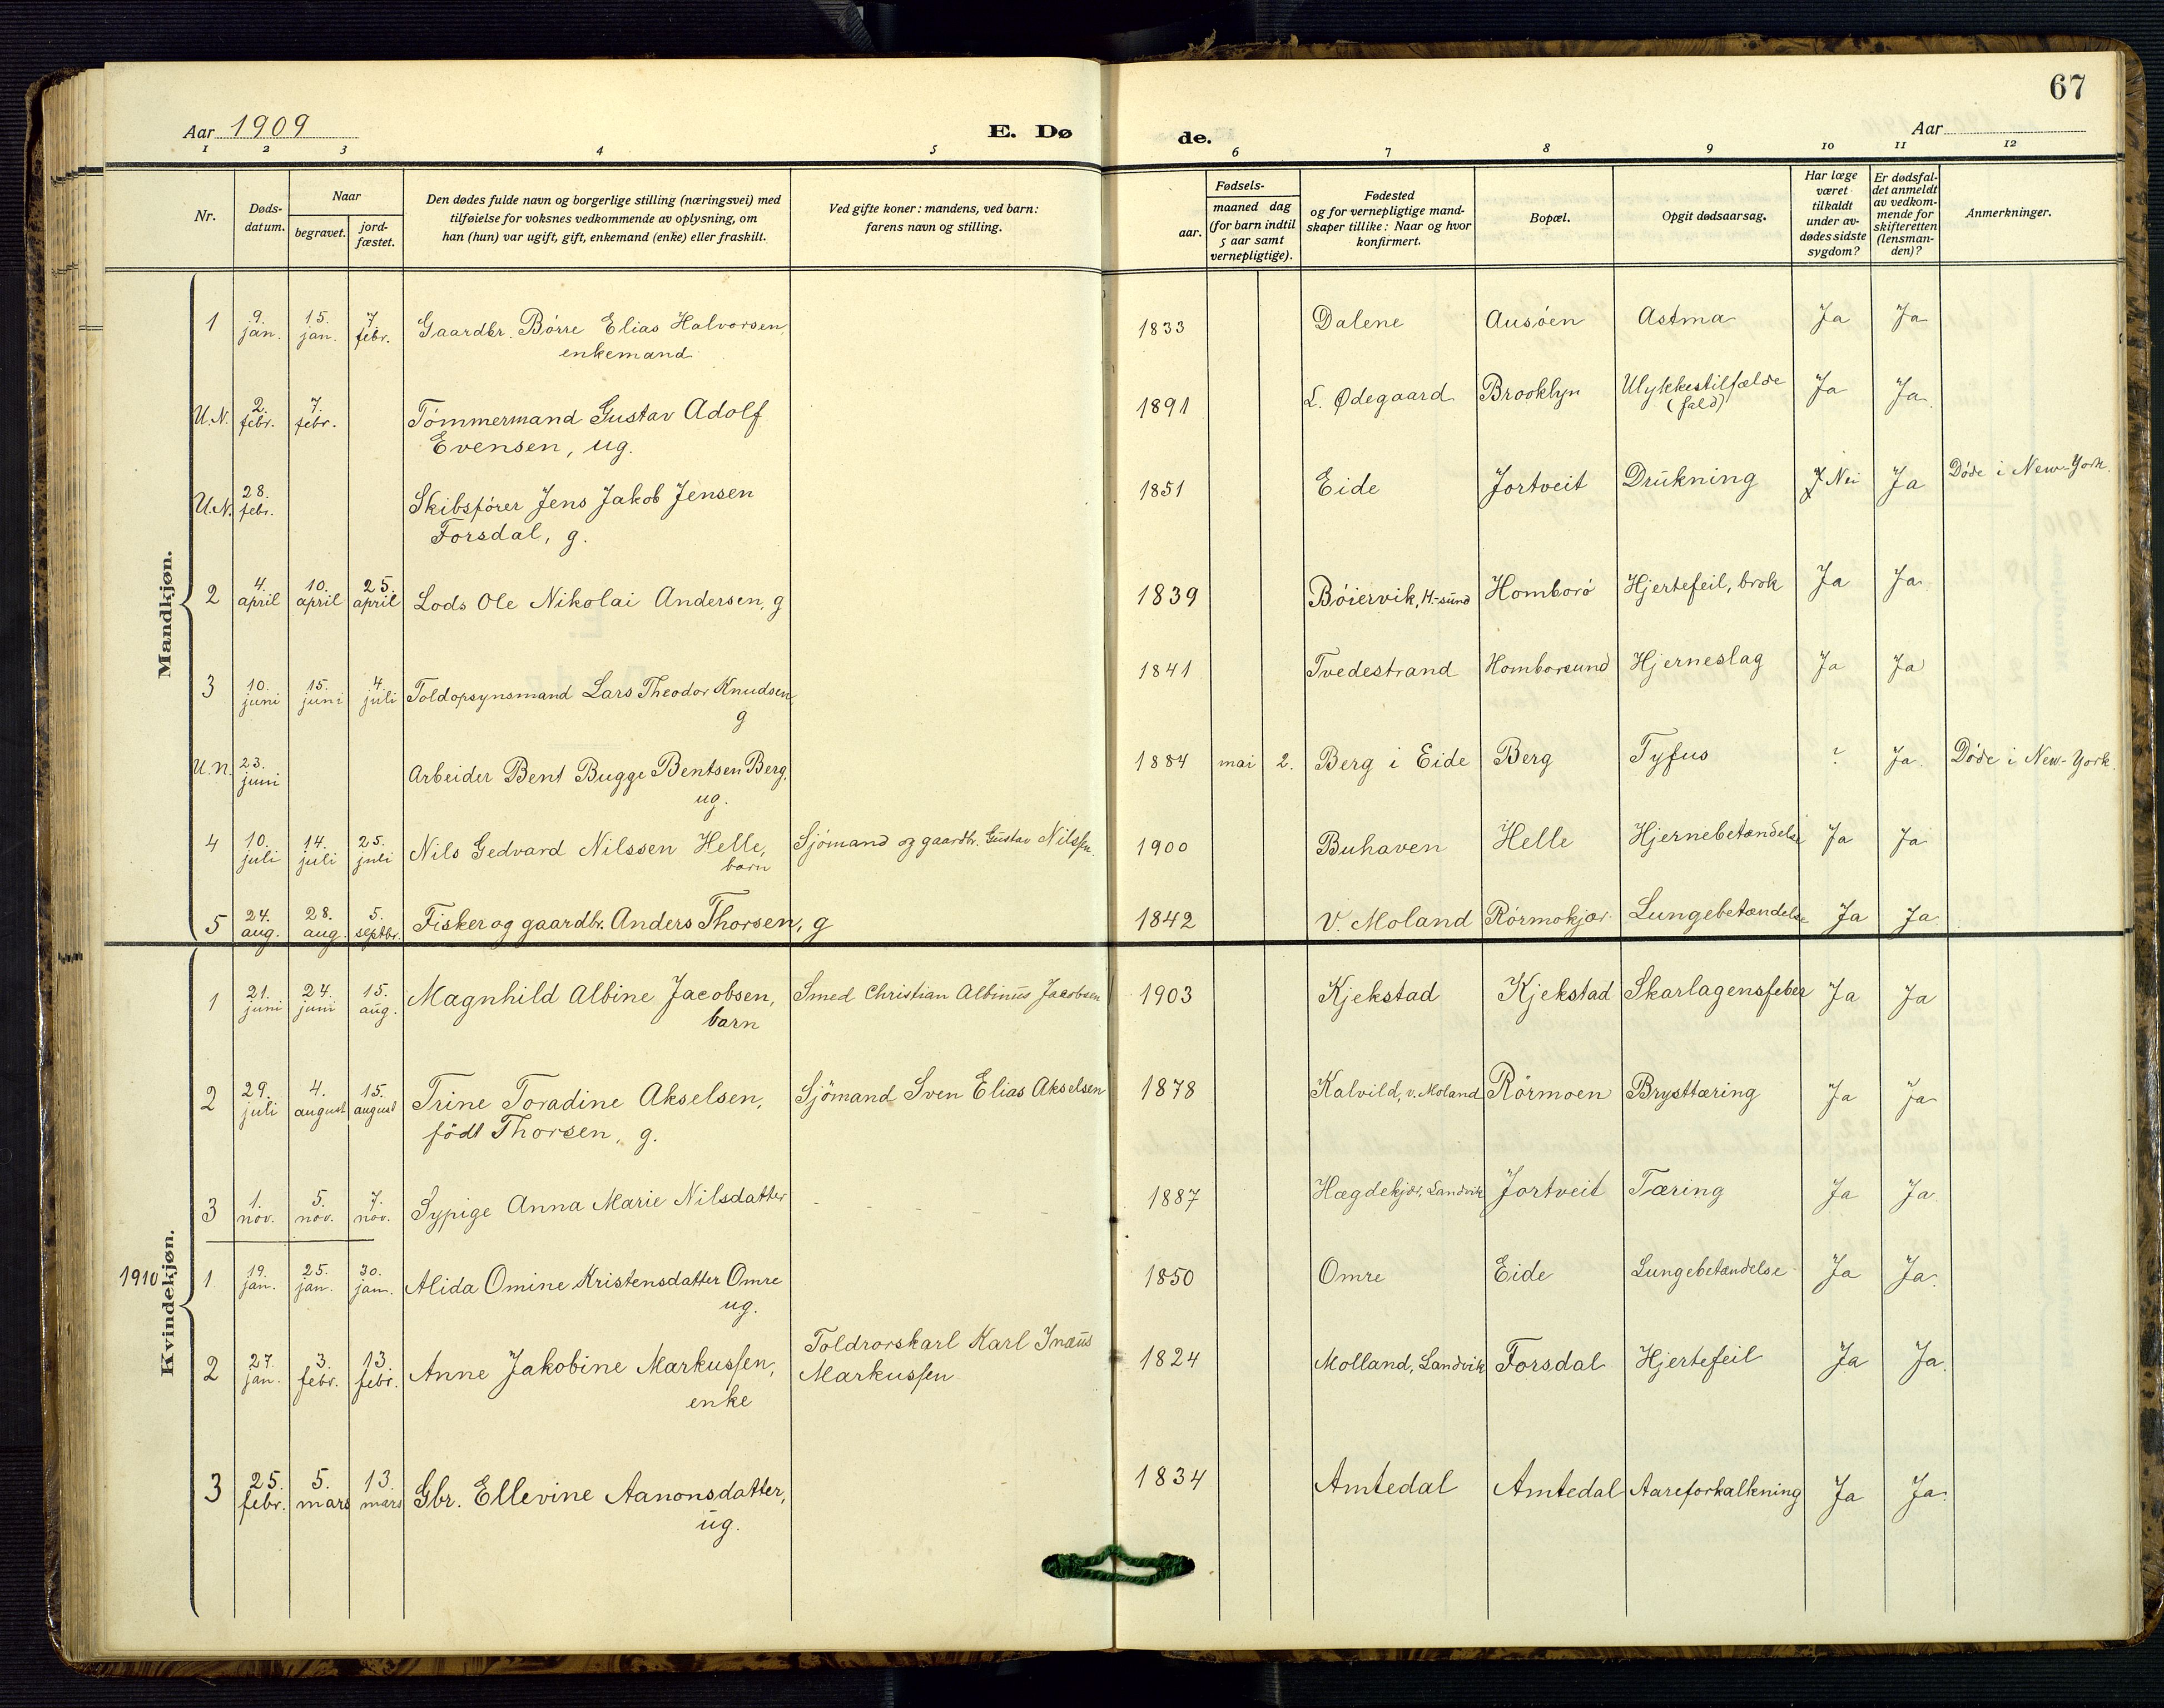 67
Aar 1909
E. Dø
de.
Aar
1 2 3 4 5 6 7 8 9 10 11 12
Nr.
Døds-
datum.
Naar
begravet.
jord-
fæstet.
Den dødes fulde navn og borgerlige stilling (næringsvei) med
tilføielse for voksnes vedkommende av oplysning, om
han (hun) var ugift, gift, enkemand (enke) eller fraskilt.
Ved gifte koner: mandens, ved barn:
farens navn og stilling.
Fødsels-
aar.
maaned dag
(for barn indtil
5 aar samt
vernepligtige).
Fødested
og for vernepligtige mand-
skaper tillike: Naar og hvor
konfirmert.
Bopæl.
Opgit dødsaarsag.
Har læge
været
tilkaldt
under av-
dødes sidste
sygdom?
Er dødsfal-
det anmeldt
av vedkom-
mende for
skifteretten
(lensman-
den)?
Anmerkninger.
Mandkjøn.
1 9. jan. 15. jan. 7 febr. Gaardbr. Börre Elias Halvorsen, 1833 Dalene Ausöen Astma Ja Ja
enkemand
U.N. 2. febr. 7. febr. Tömmermand Gustav Adolf 1891 L. Ødegaard Brooklyn Ulykkestilfælde (fald) Ja Ja.
Evensen, ug.
U.N. 28. febr. Skibsförer Jens Jakob Jensen 1851 Eide Jortveit Drukning J Nei Ja Döde i New-York.
Forsdal, g.
2 4. april 10. april 25. april Lods Ole Nikolai Andersen, g 1839 Böiervik, H.-sund Homborö Hjertefeil, brok Ja Ja
3 10. juni 15. juni 4. juli Toldopsynsmand Lars Theodor Knudsen, 1841 Tvedestrand Homborsund Hjerneslag Ja Ja
g
U.N. 23. juni Arbeider Bent Bugge Bentsen Berg, 1884 mai 2. Berg i Eide Berg Tyfus ? Ja. Döde i New-York.
ug.
4 10. juli 14. juli 25. juli Nils Gedvard Nilssen Helle, Sjömand og gaardbr. Gustav Nilssen. 1900 Buhaven Helle Hjernebetændelse Ja Ja
barn
5 24. aug. 28. aug. 5. septbr. Fisker og gaardbr. Anders Thorsen, g 1842 V. Moland Rörmokjær Lungebetændelse Ja Ja
Kvindekjøn.
1 21. juni 24. juni 15. aug. Magnhild Albine Jacobsen, Smed Christian Albinus Jacobsen 1903 Kjekstad Kjekstad Skarlagensfeber Ja Ja
barn
2 29. juli 4. august 15. august Trine Toradine Akselsen, Sjömand Sven Elias Akselsen 1878 Kalvild, v. Moland Rörmoen Brysttæring Ja Ja
födt Thorsen, g.
3 1. nov. 5. nov. 7. nov. Sypige Anna Marie Nilsdatter - - - - 1887 Hægdekjær, Landvik Jortveit Tæring Ja Ja
1910 1 19. jan. 25. jan. 30. jan. Alida Omine Kristensdatter Omre 1850 Omre Eide Lungebetændelse Ja Ja.
ug.
2 27. jan. 3. febr. 13. febr. Anne Jakobine Markussen, Toldrorskarl Karl Inæus 1824 Molland, Landvik Forsdal Hjertefeil Ja Ja.
Markussen
enke
3 25. febr. 5. mars 13. mars Gbr. Ellevine Aanonsdatter, 1834 Amtedal Amtedal Aareforkalkning Ja Ja.
ug.